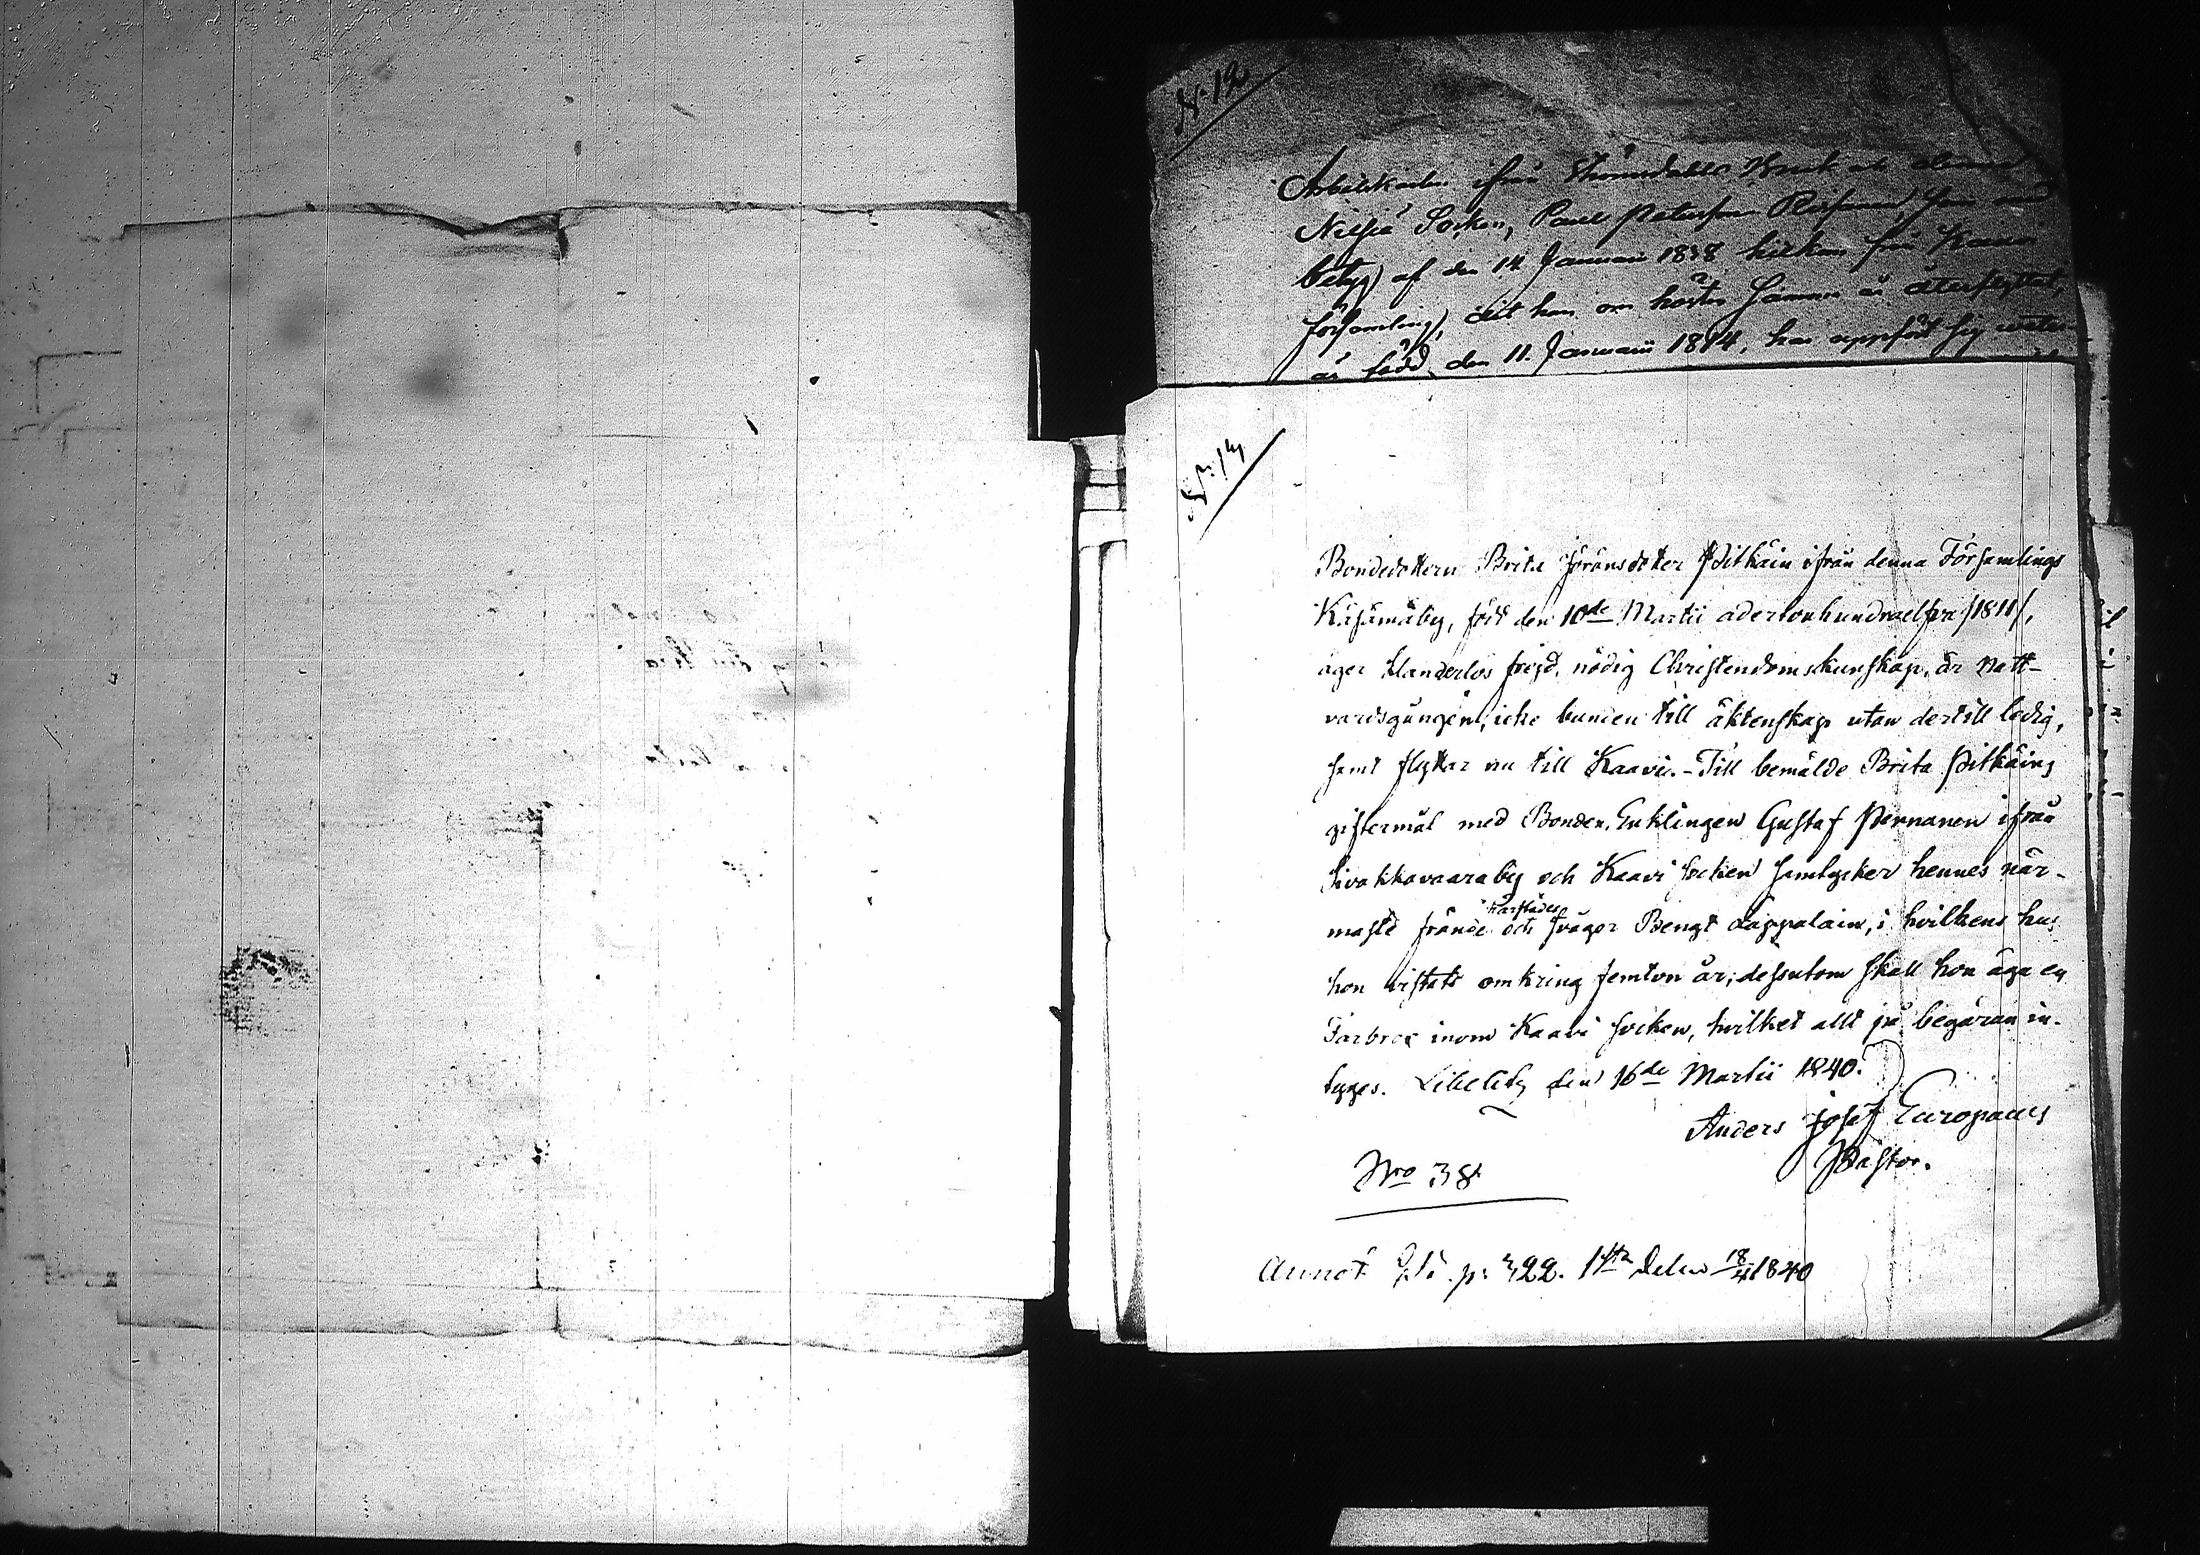 N. 12
Arbetskarlen ifrån Strömsdahls Bruk
Nilsiä Socken, Paul Petersson
betyg af den 14 Januari 1838 från
församling, dit han om hösten samma år återflyttat,
är född den 11 Januarii 1814, har uppfört sig
N. 14
Bondedottern Brita Jöransdotter Pitkäin ifrån denna Församlings
Käsämäby, född den 10de Martii adertonhundraelfva /1811/,
äger klanderlös frejd, nödig Christendomskunskap, är natt-
vardsgången, icke bunden till äktenskap utan dertill ledig,
samt flyttar nu till Kaavi. - Till bemälde Brita Pitkäins
giftermål med Bonden, Enklingen Gustaf Pennanen ifrån
Sivakkavaaraby och Kaavi socken samtycker hennes när-
maste frände och svåger Bengt Lappalain, i hvilkens hus
hon vistats omkring femton år; dessutom skall hon äga en
Farbror inom Kaavi socken, hvilket allt på begäran in-
tyges. Libelits den 16de Martii 1840.
Anders Josef Europaeus
Pastor.
Nro 38
Annot. p: 322. 1sta Delen 18/4 1840